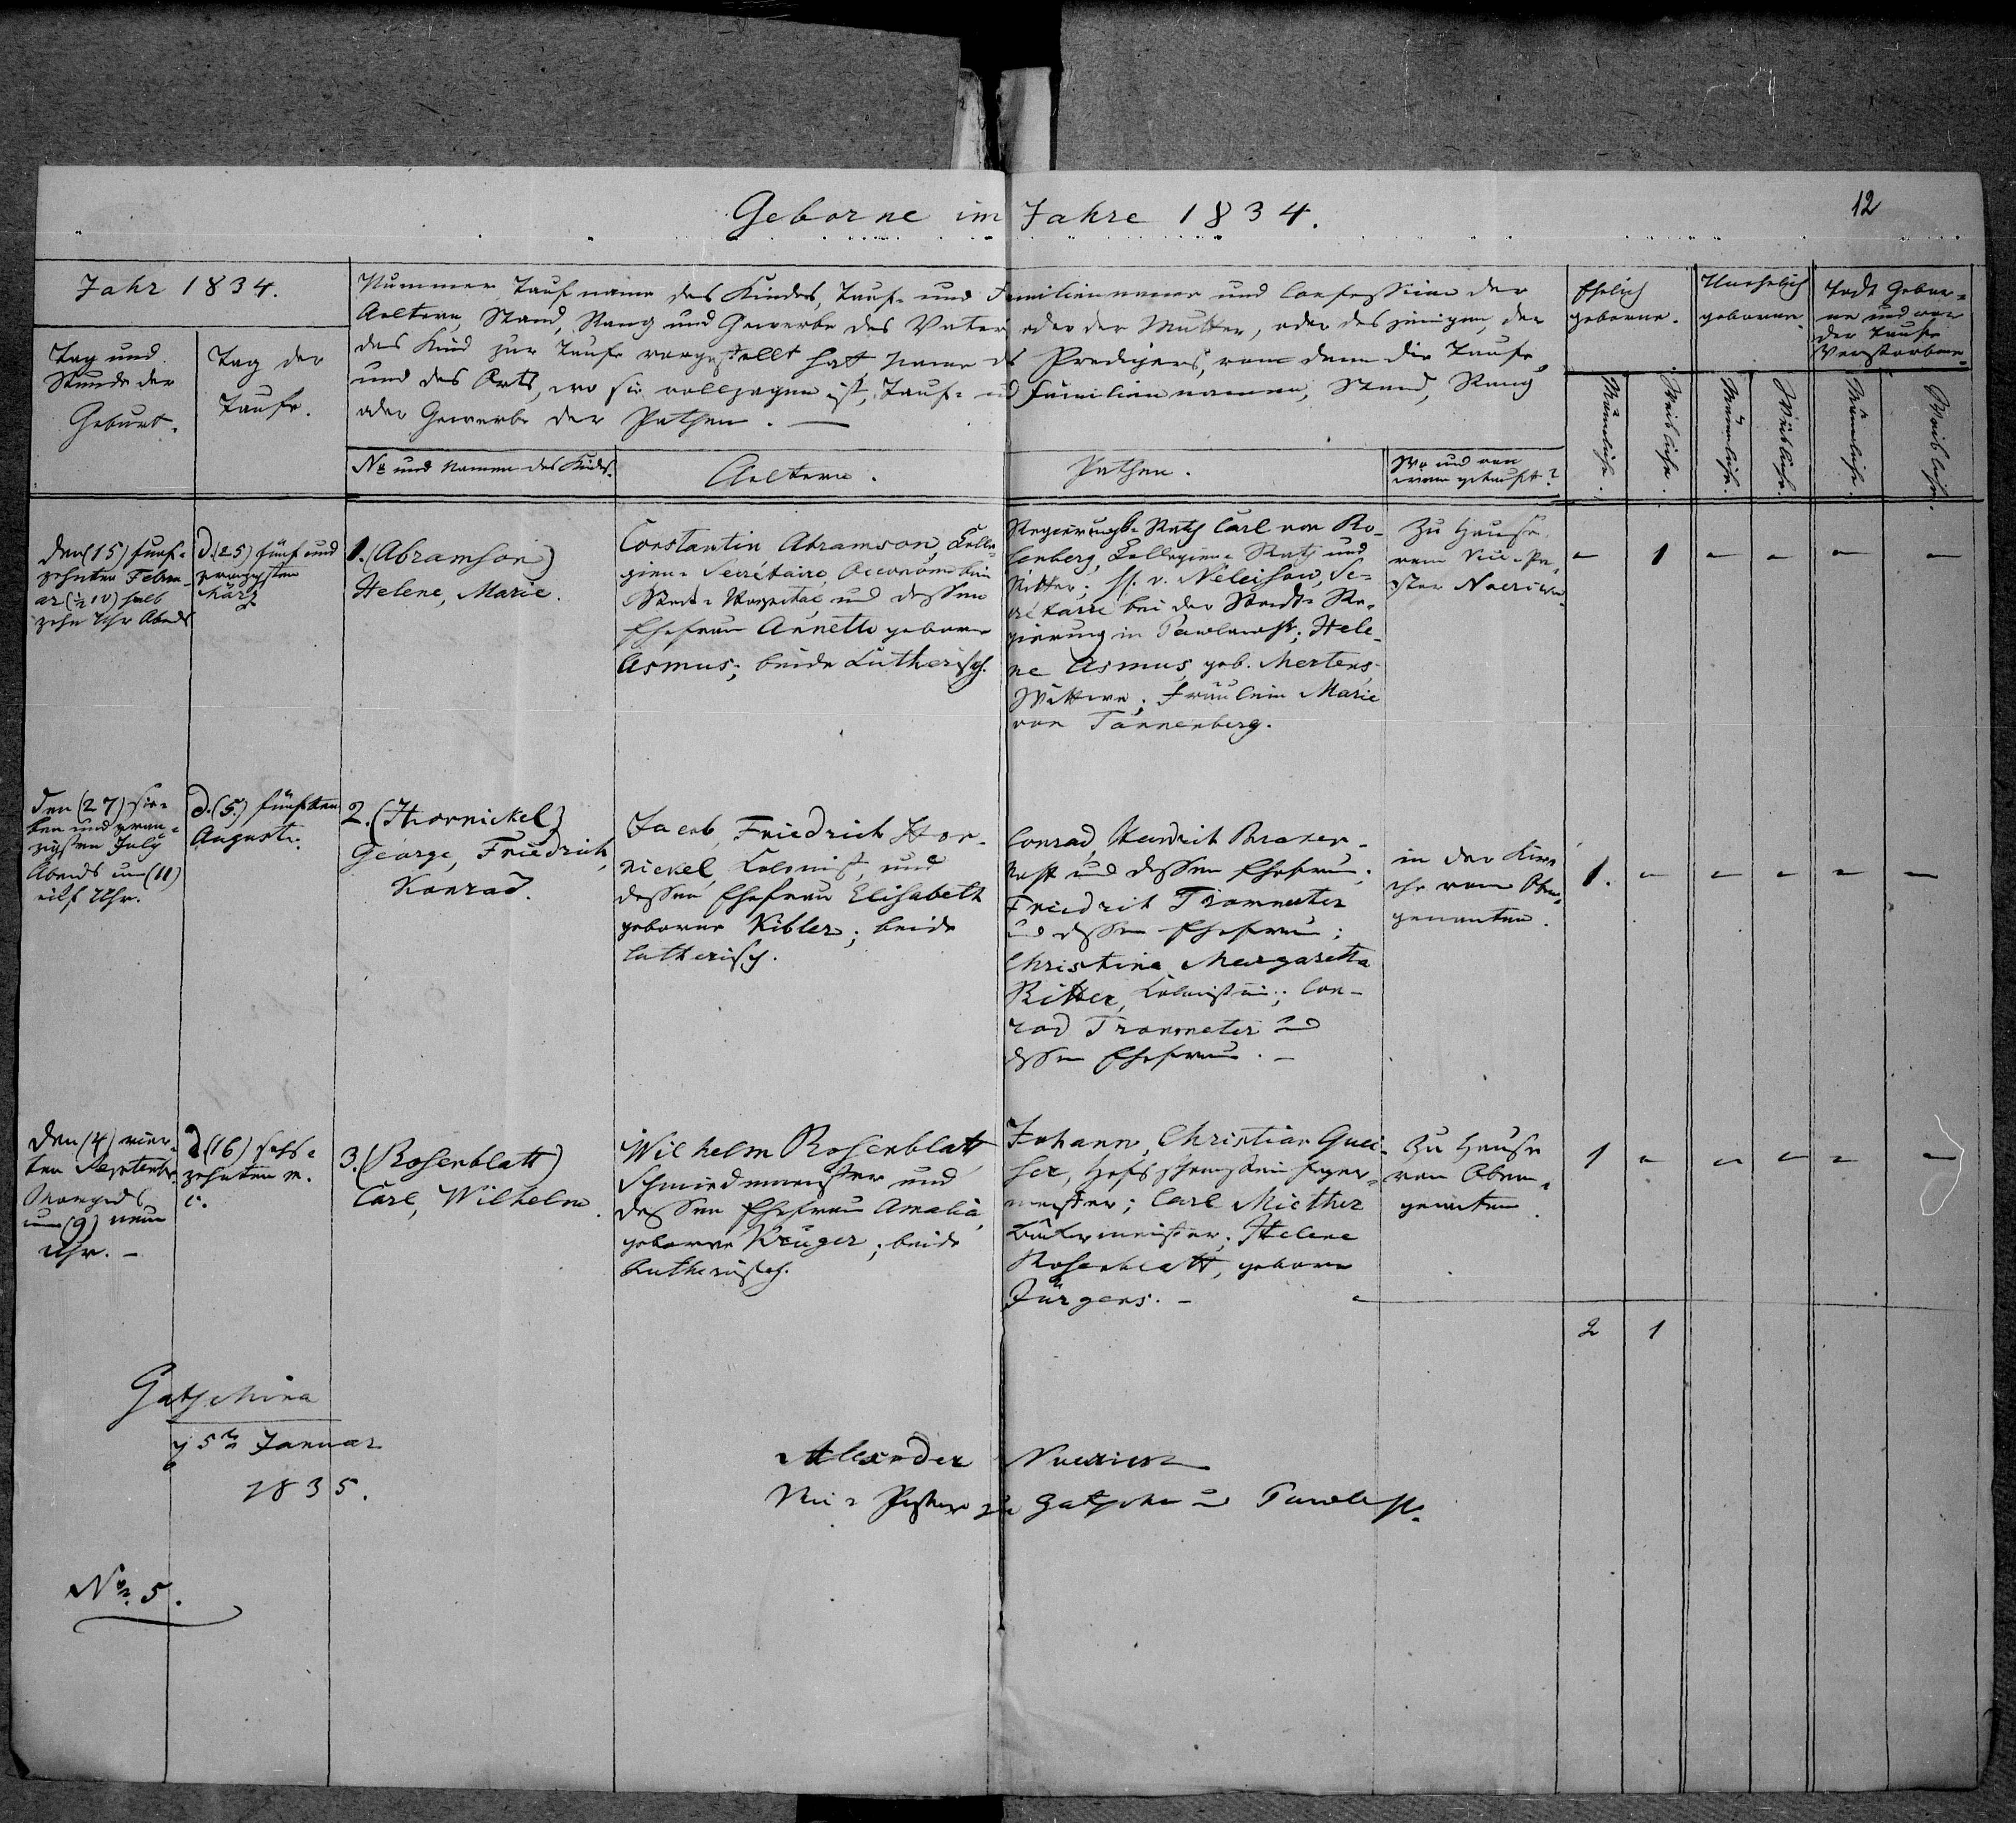 12
Geborne im Jahre 1834.
Jahr 1834.
Tag und
Stunde der
Geburt.
Tag der
Taufe.
Nummer, Taufname des Kindes, Tauf- und Familienname und Confession der
Aeltern, Stand, Rang und Gewerbe des Vaters oder der Mutter, oder desjenigen, der
das Kind zur Taufe vorgestellt hat, Name des Predigers, von dem die Taufe,
und des Orts, wo sie vollzogen ist, Tauf- und Familiennamen, Stand, Rang
oder Gewerbe der Pathen. —
No und Namen des Kindes.
Aeltern.
Pathen.
Wo und von
wem getauft?
Ehelich
geborne.
Unehelich
geborne.
Todt Gebor-
ne und vor
der Taufe
Verstorbene
Männliche.
Weibliche.
Männliche.
Weibliche.
Männliche.
Weibliche.
den (15) funf-
zehnten Febru-
ar (½ 10) halb
zehn Uhr Abends
d. (25) fünf und
zwanzigsten
März
1. (Abramson)
Helene, Marie.
Constantin Abramson, Colle-
gien-Secrétaire, Oeconom beim
Stadt-Hospital und dessen
Ehefrau Annette geborne
Asmus; beide Lutherisch.
Regierungs-Rath Carl von Ro-
senberg, Collegien-Rath und
Ritter; v. Neleisow, Se-
cretaire bei der Stadt-Re-
gierung in Pawlowsk; Hele-
ne Asmus, geb. Mertens
Wittwe; Fräulein Marie
von Tannenberg.
Zu Hause
vom Vice-Pa-
stor
- 1 - - - -
den (27) sie-
ben und zwan-
zigsten July
Abends um (11)
eilf Uhr.
d. (5.) fünften
August.
2. (Hornickel)
George, Friedrich,
Konrad.
Jacob, Friedrich Hor-
nickel, Colonist, und
dessen Ehefrau Elisabeth
geborne Kibler; beide
lutherisch.
Conrad,
und dessen Ehefrau;
Friedrich Trommeter
und dessen Ehefrau;
Christine, Margaretta
Ritter, Colonistin; Con-
rad Trommeter und
dessen Ehefrau. —
in der Kir-
che vom Oben-
genannten.
1. - - - - -
den (4) vier-
ten September
Morgens
um (9) neun
Uhr. —
d. (16) sechs-
zehnten m.
c.
3. (Rosenblatt)
Carl, Wilhelm.
Wilhelm Rosenblatt,
Schmiedemeister und
dessen Ehefrau Amalia,
geborne Krüger; beide
Lutherisch.
Johann, Christian Guei-
ser, Hofschornsteinfeger-
meister; Carl Miether
Bäckermeister; Helene
Rosenblatt, geborne
Jürgens. —
Zu Hause
vom Oben-
genannten.
1 - - - - -
2 1
Gatschina
d. 5ten Januar
1835.
Alexander
Vice-Pastor zu Gatschina und Pawlowsk.
No 5.